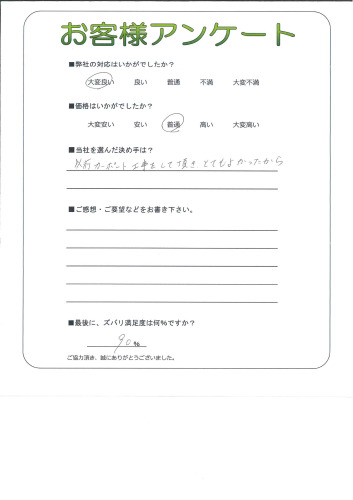 お客様アンケート
■弊社の対応はいかがでしたか？
大変良い 良い 普通 不満 大変不満
■価格はいかがでしたか？
大変安い 安い 普通 高い 大変高い
■当社を選んだ決め手は？
以前カーポート工事をして頂きとてもよかったから
■ご感想・ご要望などをお書き下さい。
■最後に、ズバリ満足度は何％ですか？
90％
ご協力頂き、誠にありがとうございました。